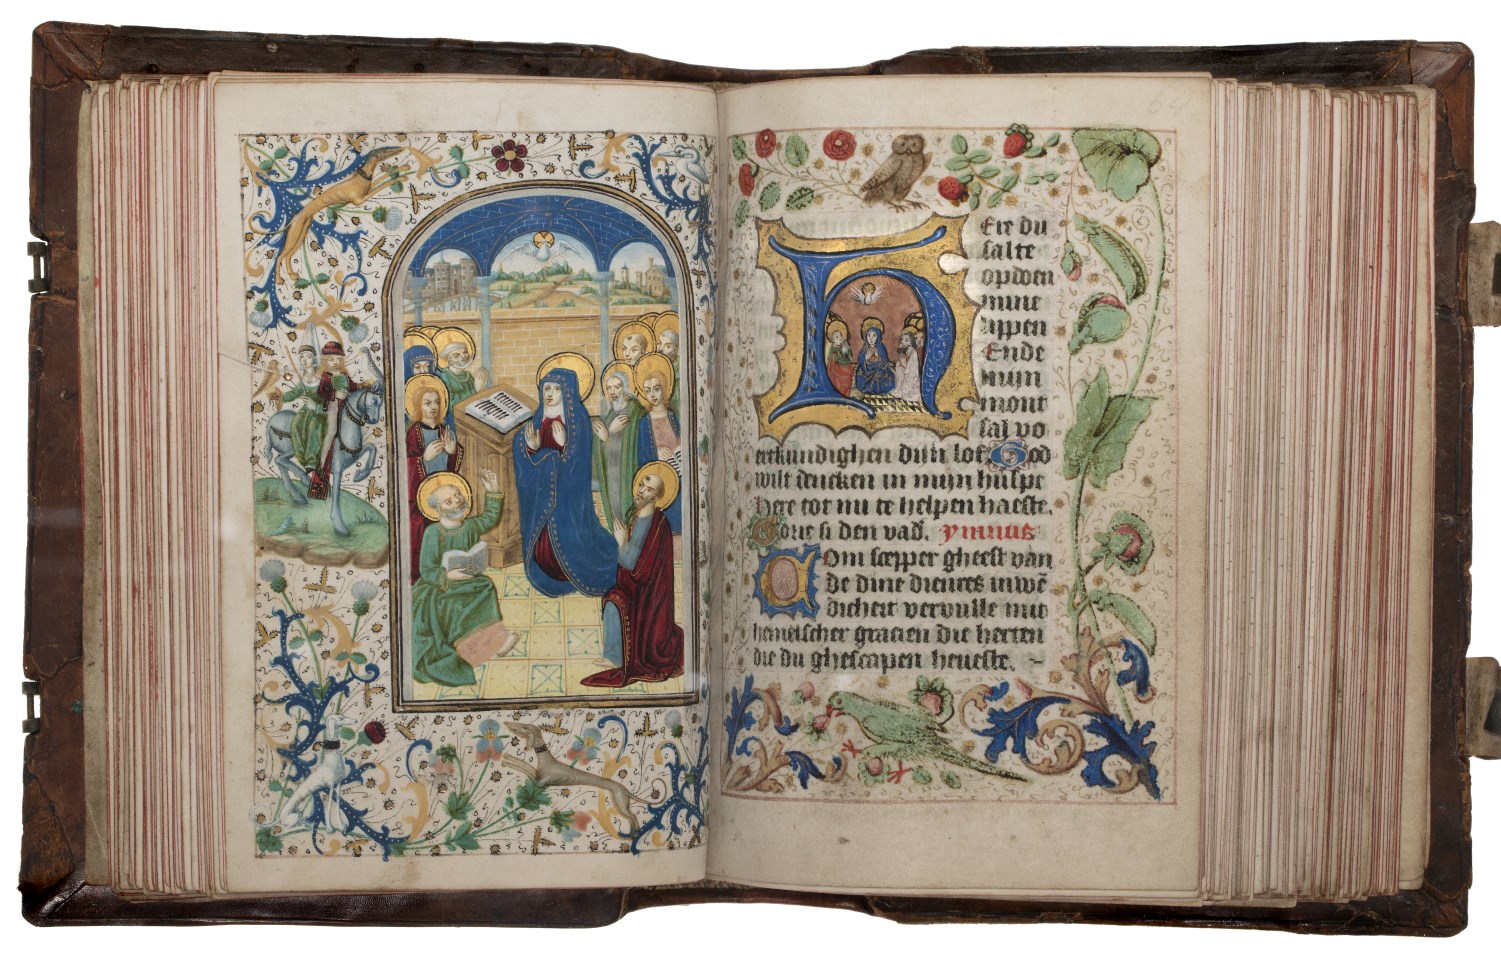 64
HEre du
salte
opdoen
mine
lippen
Ende
mijn
mont
sal vo
erkundighen dijn lof. God
wilt dencken in mijn hulpe
here tot mi te helpen haeste.
Glorie si den vad. ymnus
Com scepper gheest van
de dine dienres inwē
dicheit vervulle mit
hemelscher gracien die herten
die du ghescapen heueste.